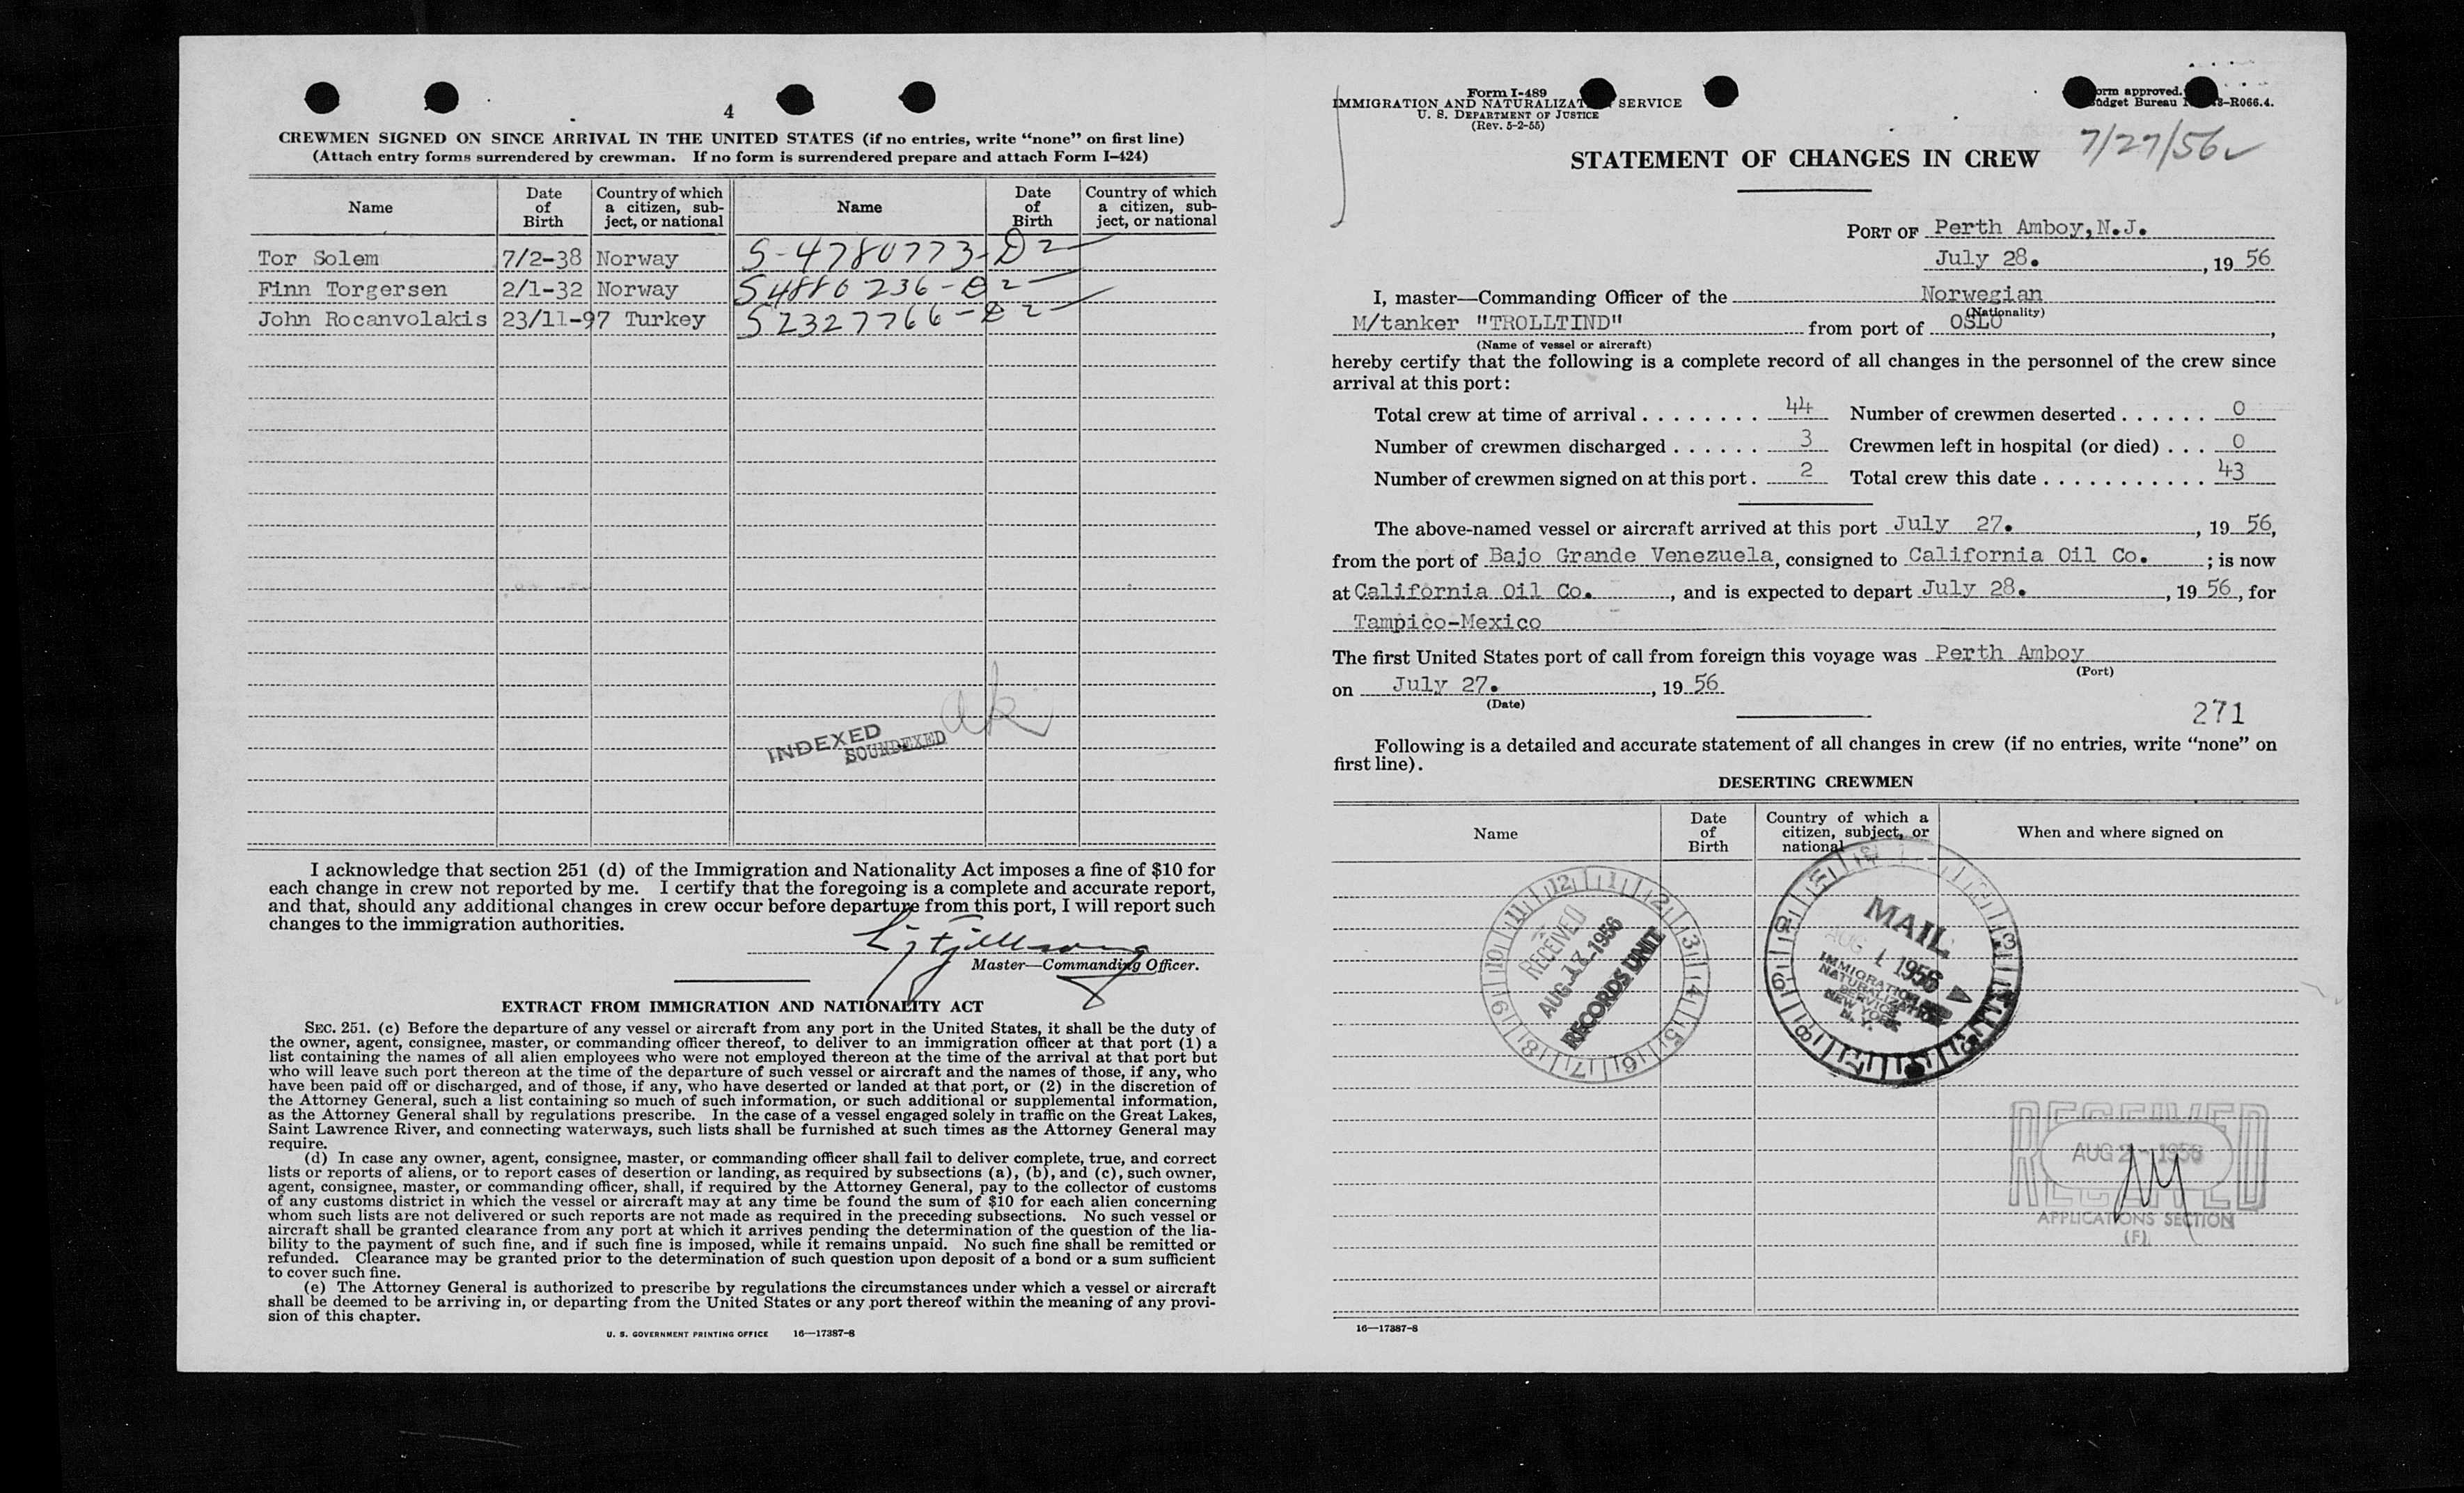 4
CREWMEN SIGNED ON SINCE ARRIVAL IN THE UNITED STATES (if no entries, write “none” on first line)
(Attach entry forms surrendered by crewman. If no form is surrendered prepare and attach Form I-424)
Name Date of Birth Country of which a citizen, subject, or national Name Date of Birth Country of which a citizen, subject, or national
Tor Solem 7/2-38 Norway S-4780773-D2
Finn Torgersen 2/1-32 Norway S4880236-D2
John Rocanvolakis 23/11-97 Turkey S2327766-D2
INDEXED
SOUNDEXED
ak
I acknowledge that section 251 (d) of the Immigration and Nationality Act imposes a fine of $10 for
each change in crew not reported by me. I certify that the foregoing is a complete and accurate report,
and that, should any additional changes in crew occur before departure from this port, I will report such
changes to the immigration authorities.
Master—Commanding Officer.
EXTRACT FROM IMMIGRATION AND NATIONALITY ACT
SEC. 251. (c) Before the departure of any vessel or aircraft from any port in the United States, it shall be the duty of
the owner, agent, consignee, master, or commanding officer thereof, to deliver to an immigration officer at that port (1) a
list containing the names of all alien employees who were not employed thereon at the time of the arrival at that port but
who will leave such port thereon at the time of the departure of such vessel or aircraft and the names of those, if any, who
have been paid off or discharged, and of those, if any, who have deserted or landed at that port, or (2) in the discretion of
the Attorney General, such a list containing so much of such information, or such additional or supplemental information,
as the Attorney General shall by regulations prescribe. In the case of a vessel engaged solely in traffic on the Great Lakes,
Saint Lawrence River, and connecting waterways, such lists shall be furnished at such times as the Attorney General may
require.
(d) In case any owner, agent, consignee, master, or commanding officer shall fail to deliver complete, true, and correct
lists or reports of aliens, or to report cases of desertion or landing, as required by subsections (a), (b), and (c), such owner,
agent, consignee, master, or commanding officer, shall, if required by the Attorney General, pay to the collector of customs
of any customs district in which the vessel or aircraft may at any time be found the sum of $10 for each alien concerning
whom such lists are not delivered or such reports are not made as required in the preceding subsections. No such vessel or
aircraft shall be granted clearance from any port at which it arrives pending the determination of the question of the lia-
bility to the payment of such fine, and if such fine is imposed, while it remains unpaid. No such fine shall be remitted or
refunded. Clearance may be granted prior to the determination of such question upon deposit of a bond or a sum sufficient
to cover such fine.
(e) The Attorney General is authorized to prescribe by regulations the circumstances under which a vessel or aircraft
shall be deemed to be arriving in, or departing from the United States or any port thereof within the meaning of any provi-
sion of this chapter.
U. S. GOVERNMENT PRINTING OFFICE 16—17387-8
Form I-489
IMMIGRATION AND NATURALIZAT SERVICE
U. S. DEPARTMENT OF JUSTICE
(Rev. 5-2-55)
orm approved.
udget Bureau -R066.4.
7/27/56
STATEMENT OF CHANGES IN CREW
PORT OF Perth Amboy, N.J.
July 28. , 19 56
I, master—Commanding Officer of the Norwegian
(Nationality)
M/tanker "TROLLTIND" from port of OSLO ,
(Name of vessel or aircraft)
hereby certify that the following is a complete record of all changes in the personnel of the crew since
arrival at this port:
Total crew at time of arrival . . . . . . . . 44 Number of crewmen deserted . . . . . . 0
Number of crewmen discharged . . . . . . 3 Crewmen left in hospital (or died) . . . 0
Number of crewmen signed on at this port . 2 Total crew this date . . . . . . . . . . . 43
The above-named vessel or aircraft arrived at this port July 27. , 19 56,
from the port of Bajo Grande Venezuela, consigned to California Oil Co. ; is now
at California Oil Co. , and is expected to depart July 28. , 19 56, for
Tampico-Mexico
The first United States port of call from foreign this voyage was Perth Amboy
(Port)
on July 27. , 19 56
(Date)
271
Following is a detailed and accurate statement of all changes in crew (if no entries, write “none” on
first line).
DESERTING CREWMEN
Name Date of Birth Country of which a citizen, subject, or national When and where signed on
RECEIVED
AUG 13 1956
RECORDS UNIT
MAIL
AUG 1 1956
IMMIGRATION
NATURALIZATION
SERVICE
NEW YORK
N. Y.
RECEIVED
AUG 2 - 1956
APPLICATIONS SECTION
(F)
16—17387-8